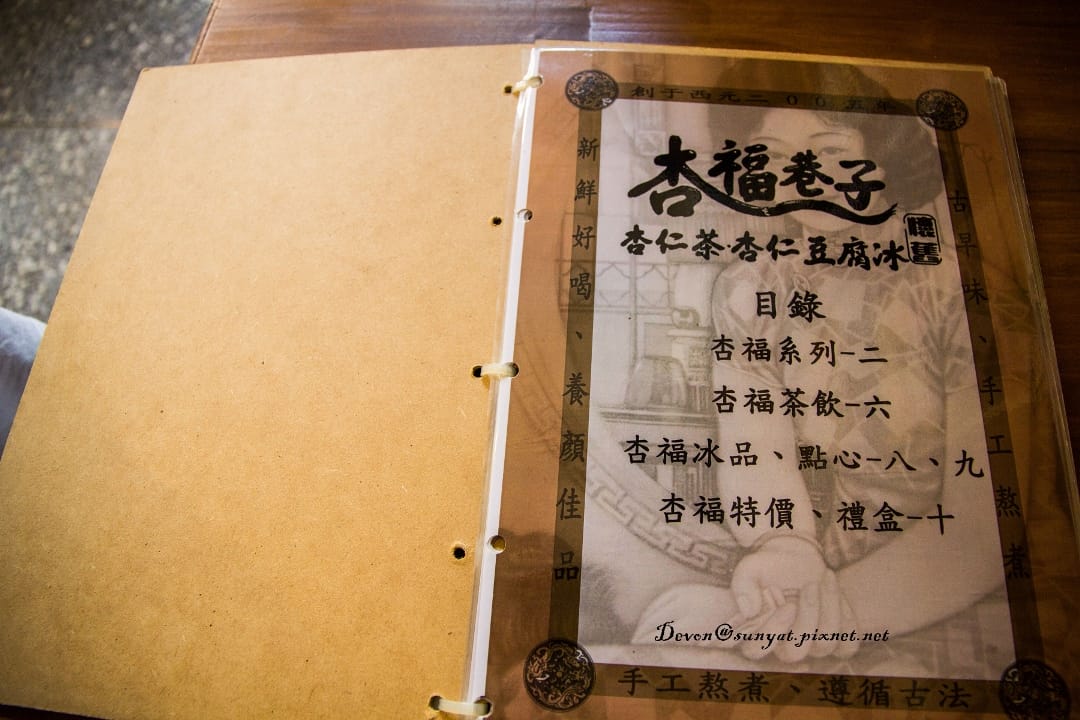 創于西元二００五年
杏福巷子
杏仁茶·杏仁豆腐冰
懷舊
目錄
杏福系列-二
杏福茶飲-六
杏福冰品、點心-八、九
杏福特價、禮盒-十
新鮮好喝、養顏佳品
古早味、手工熬煮
手工熬煮、遵循古法
Devon@sunyat.pixnet.net